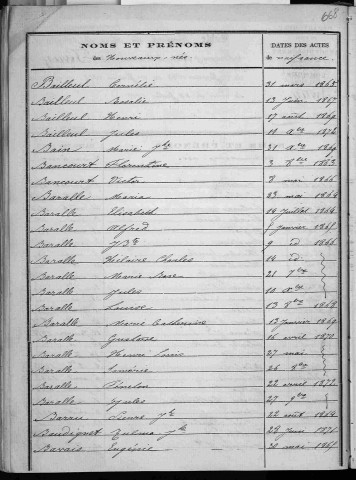 668
NOMS ET PRÉNOMS DATES DES ACTES
des Nouveaux-nés de naissance
Bailleul 31 mars 1865
Bailleul Rosalie 13 Juin 1867
Bailleul Henri 17 août 1869
Bailleul Jules 10 1872
Bain Marie Jh 31
Bancourt Florentine 3 1863
Bancourt Victor 8 mai 1866
Baralle Maria 23 mai 1864
Baralle Elisabeth 14 Juillet 1864
Baralle Alfred janvier 1865
Baralle JBte 9 id 1866
Baralle Hilaire Charles 14 id
Baralle Marie Rose 21 7bre
Baralle Jules 10
Baralle Louise 13 8bre 1868
Baralle Marie Catherine 12 janvier 1869
Baralle Gustave 16 avril 1870
Baralle Henri Louis 27 mai
Baralle 26
Baralle 22 avril 1872
Baralle Jules 27 9bre
Barre Jh 22 août 1864
Baudignet Zulma Jh 29 Juin 1871
Bavais Eugénie 30 mai